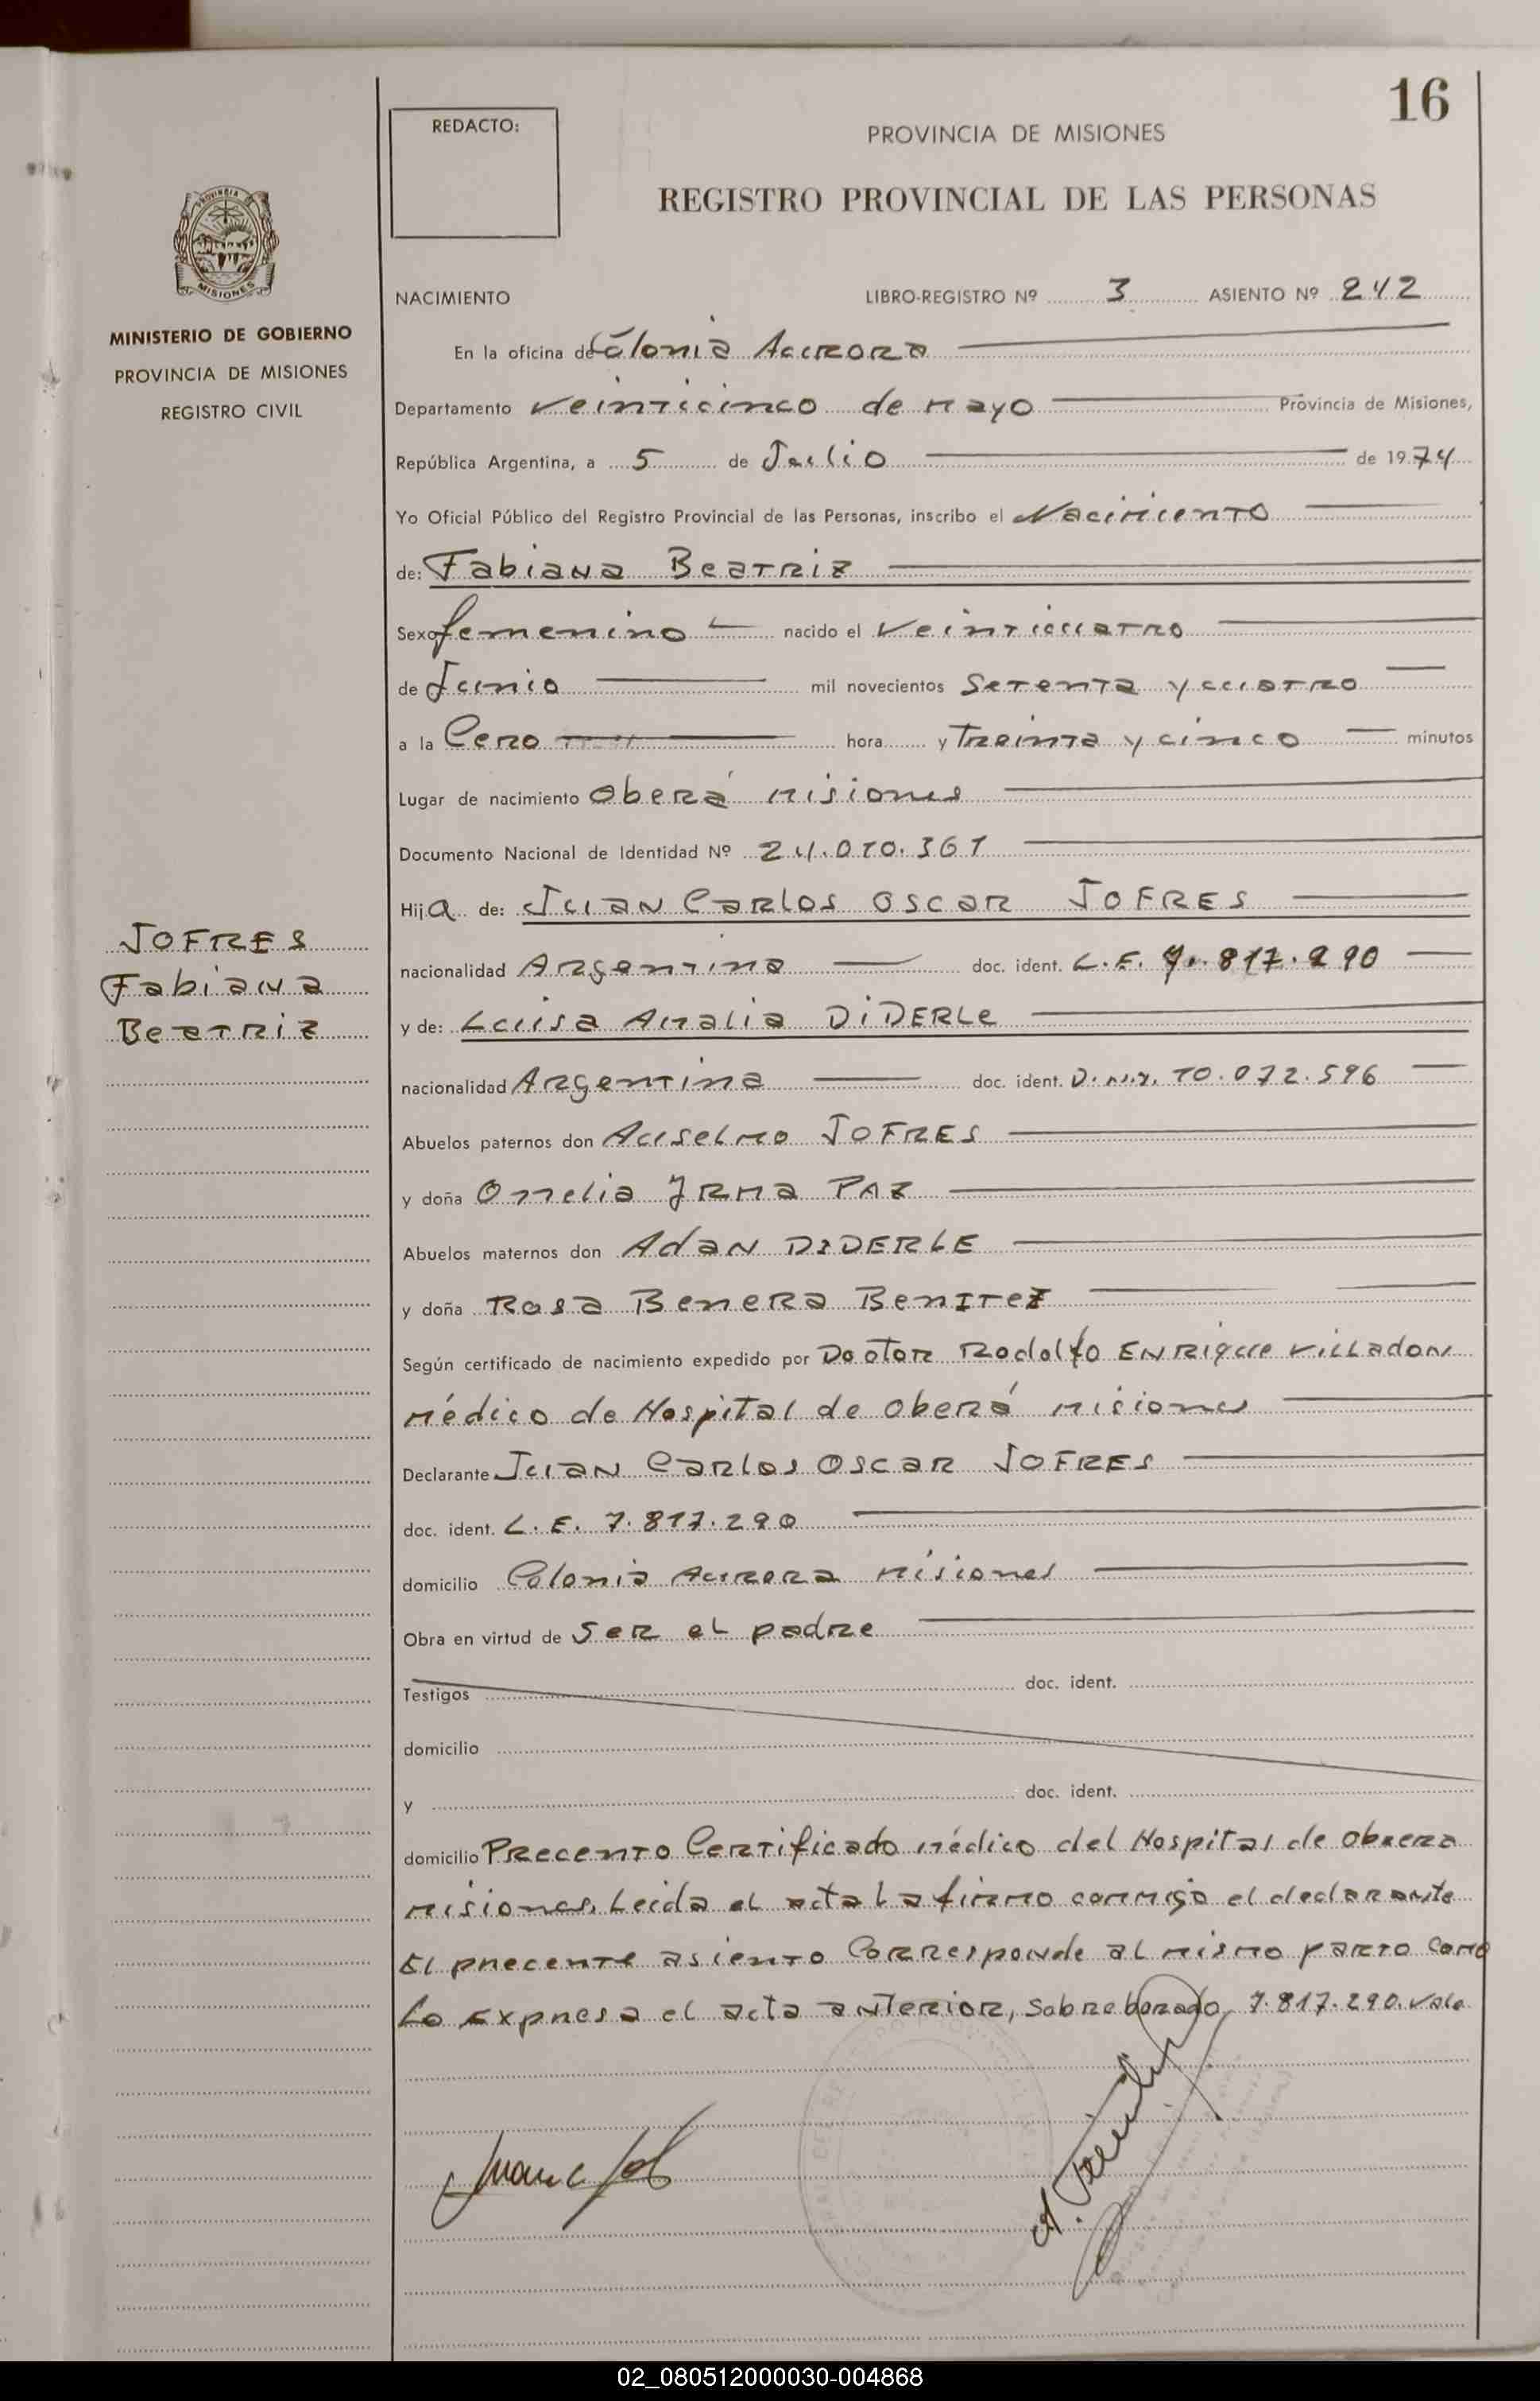 16
REDACTO:
PROVINCIA DE MISIONES
REGISTRO PROVINCIAL DE LAS PERSONAS
MISIONES
MINISTERIO DE GOBIERNO
PROVINCIA DE MISIONES
REGISTRO CIVIL
NACIMIENTO LIBRO-REGISTRO Nº 3 ASIENTO Nº 242
En la oficina de Colonia Aurora
Departamento Veinticinco de Mayo Provincia de Misiones,
República Argentina, a 5 de Julio de 1974
Yo Oficial Público del Registro Provincial de las Personas, inscribo el Nacimiento
de: Fabiana Beatriz
Sexo femenino nacido el Veinticuatro
de Junio mil novecientos Setenta y cuatro
a la Cero hora y Treinta y cinco minutos
Lugar de nacimiento Oberá Misiones
Documento Nacional de Identidad Nº 24.010.361
Hija de: Juan Carlos Oscar JOFRES
nacionalidad Argentina doc. ident. L.E. 7.817.290
y de: Luisa Analia DiDERLe
nacionalidad Argentina doc. ident. D.N.Y. 10.072.596
Abuelos paternos don Auselmo JOFRES
y doña Ornelia Yrma PAZ
Abuelos maternos don Adan DIDERLE
y doña Rosa Benera Benitez
Según certificado de nacimiento expedido por Doctor Rodolfo ENRique Villadon
Médico de Hospital de Oberá Misiones
Declarante Juan Carlos Oscar JOFRES
doc. ident. L.E. 7.817.290
domicilio Colonia Aurora Misiones
Obra en virtud de Ser el padre
Testigos doc. ident.
domicilio
y doc. ident.
domicilio Precento Certificado Médico del Hospital de Obrera
Misiones. Leida el acta La firmo conmigo el declarante
El precente asiento Corresponde al mismo parto Como
Lo Expresa el acta anterior, Sobreborado, 7.817.290. Vale
JOFRES
Fabiana
Beatriz
Juan C Jof
02_080512000030-004868